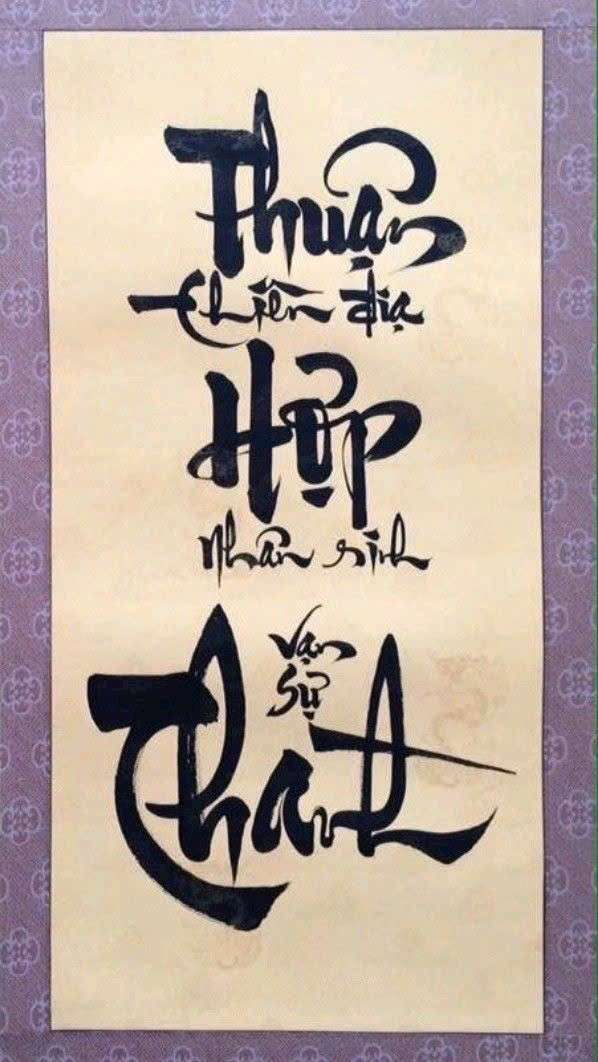 Thuận
thiên địa
Hợp
nhân sinh
vạn
sự
Thành